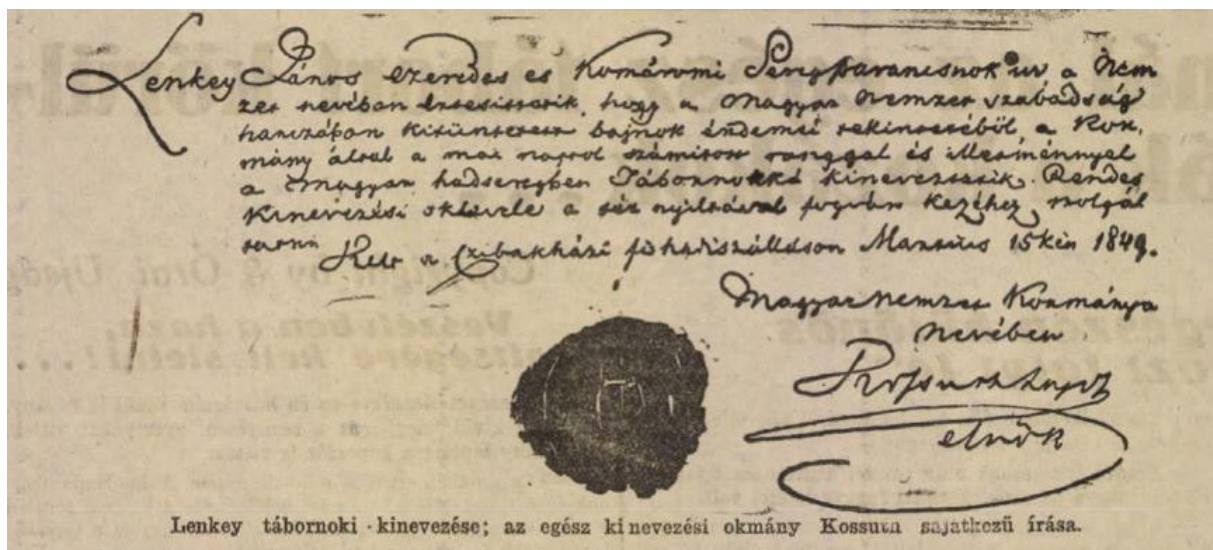 Lenkey János Ezredes es Komáromi Térparancsnok ur a Nem
zet nevében értesittetik, hogy a Magyar Nemzet szabadság
harczában kitüntetett bajnok érdemei tekintetéből, a Kor,
mány által a mai naptol számitott ranggal és illetménnyel
a Magyar hadseregben Tábornokká kineveztetik. Rendes
Kinevezési oklevele a tér nyiltával fogván kezéhez szolgál
tatni
Kelt a Czibakházi főhadiszálláson Martius 15kén 1849.
Magyar nemzet Kormánya
nevében
Kossuth Lajos
elnök
Lenkey tábornoki kinevezése; az egész kinevezési okmány Kossuth sajátkezű írása.